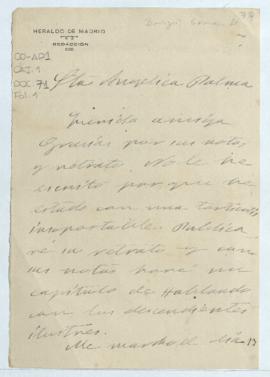 HERALDO DE MADRID
REDACCIÓN
77
CO-AP1
CAJ. 1
DOC. 71
Fol. 1
Sta Angelica Palma
Querida amiga
Gracias por sus notas
y retrato. No le he
escrito porque he
estado con una
insoportable. Publica
ré su retrato y con
sus notas haré un
capítulo de Hablando
con los descendientes
ilustres.
Me marcho el día 13